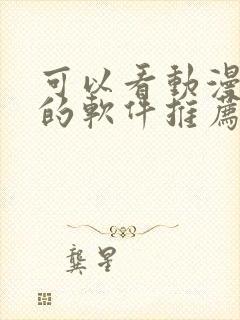 可以看動漫
的軟件推薦
龔星